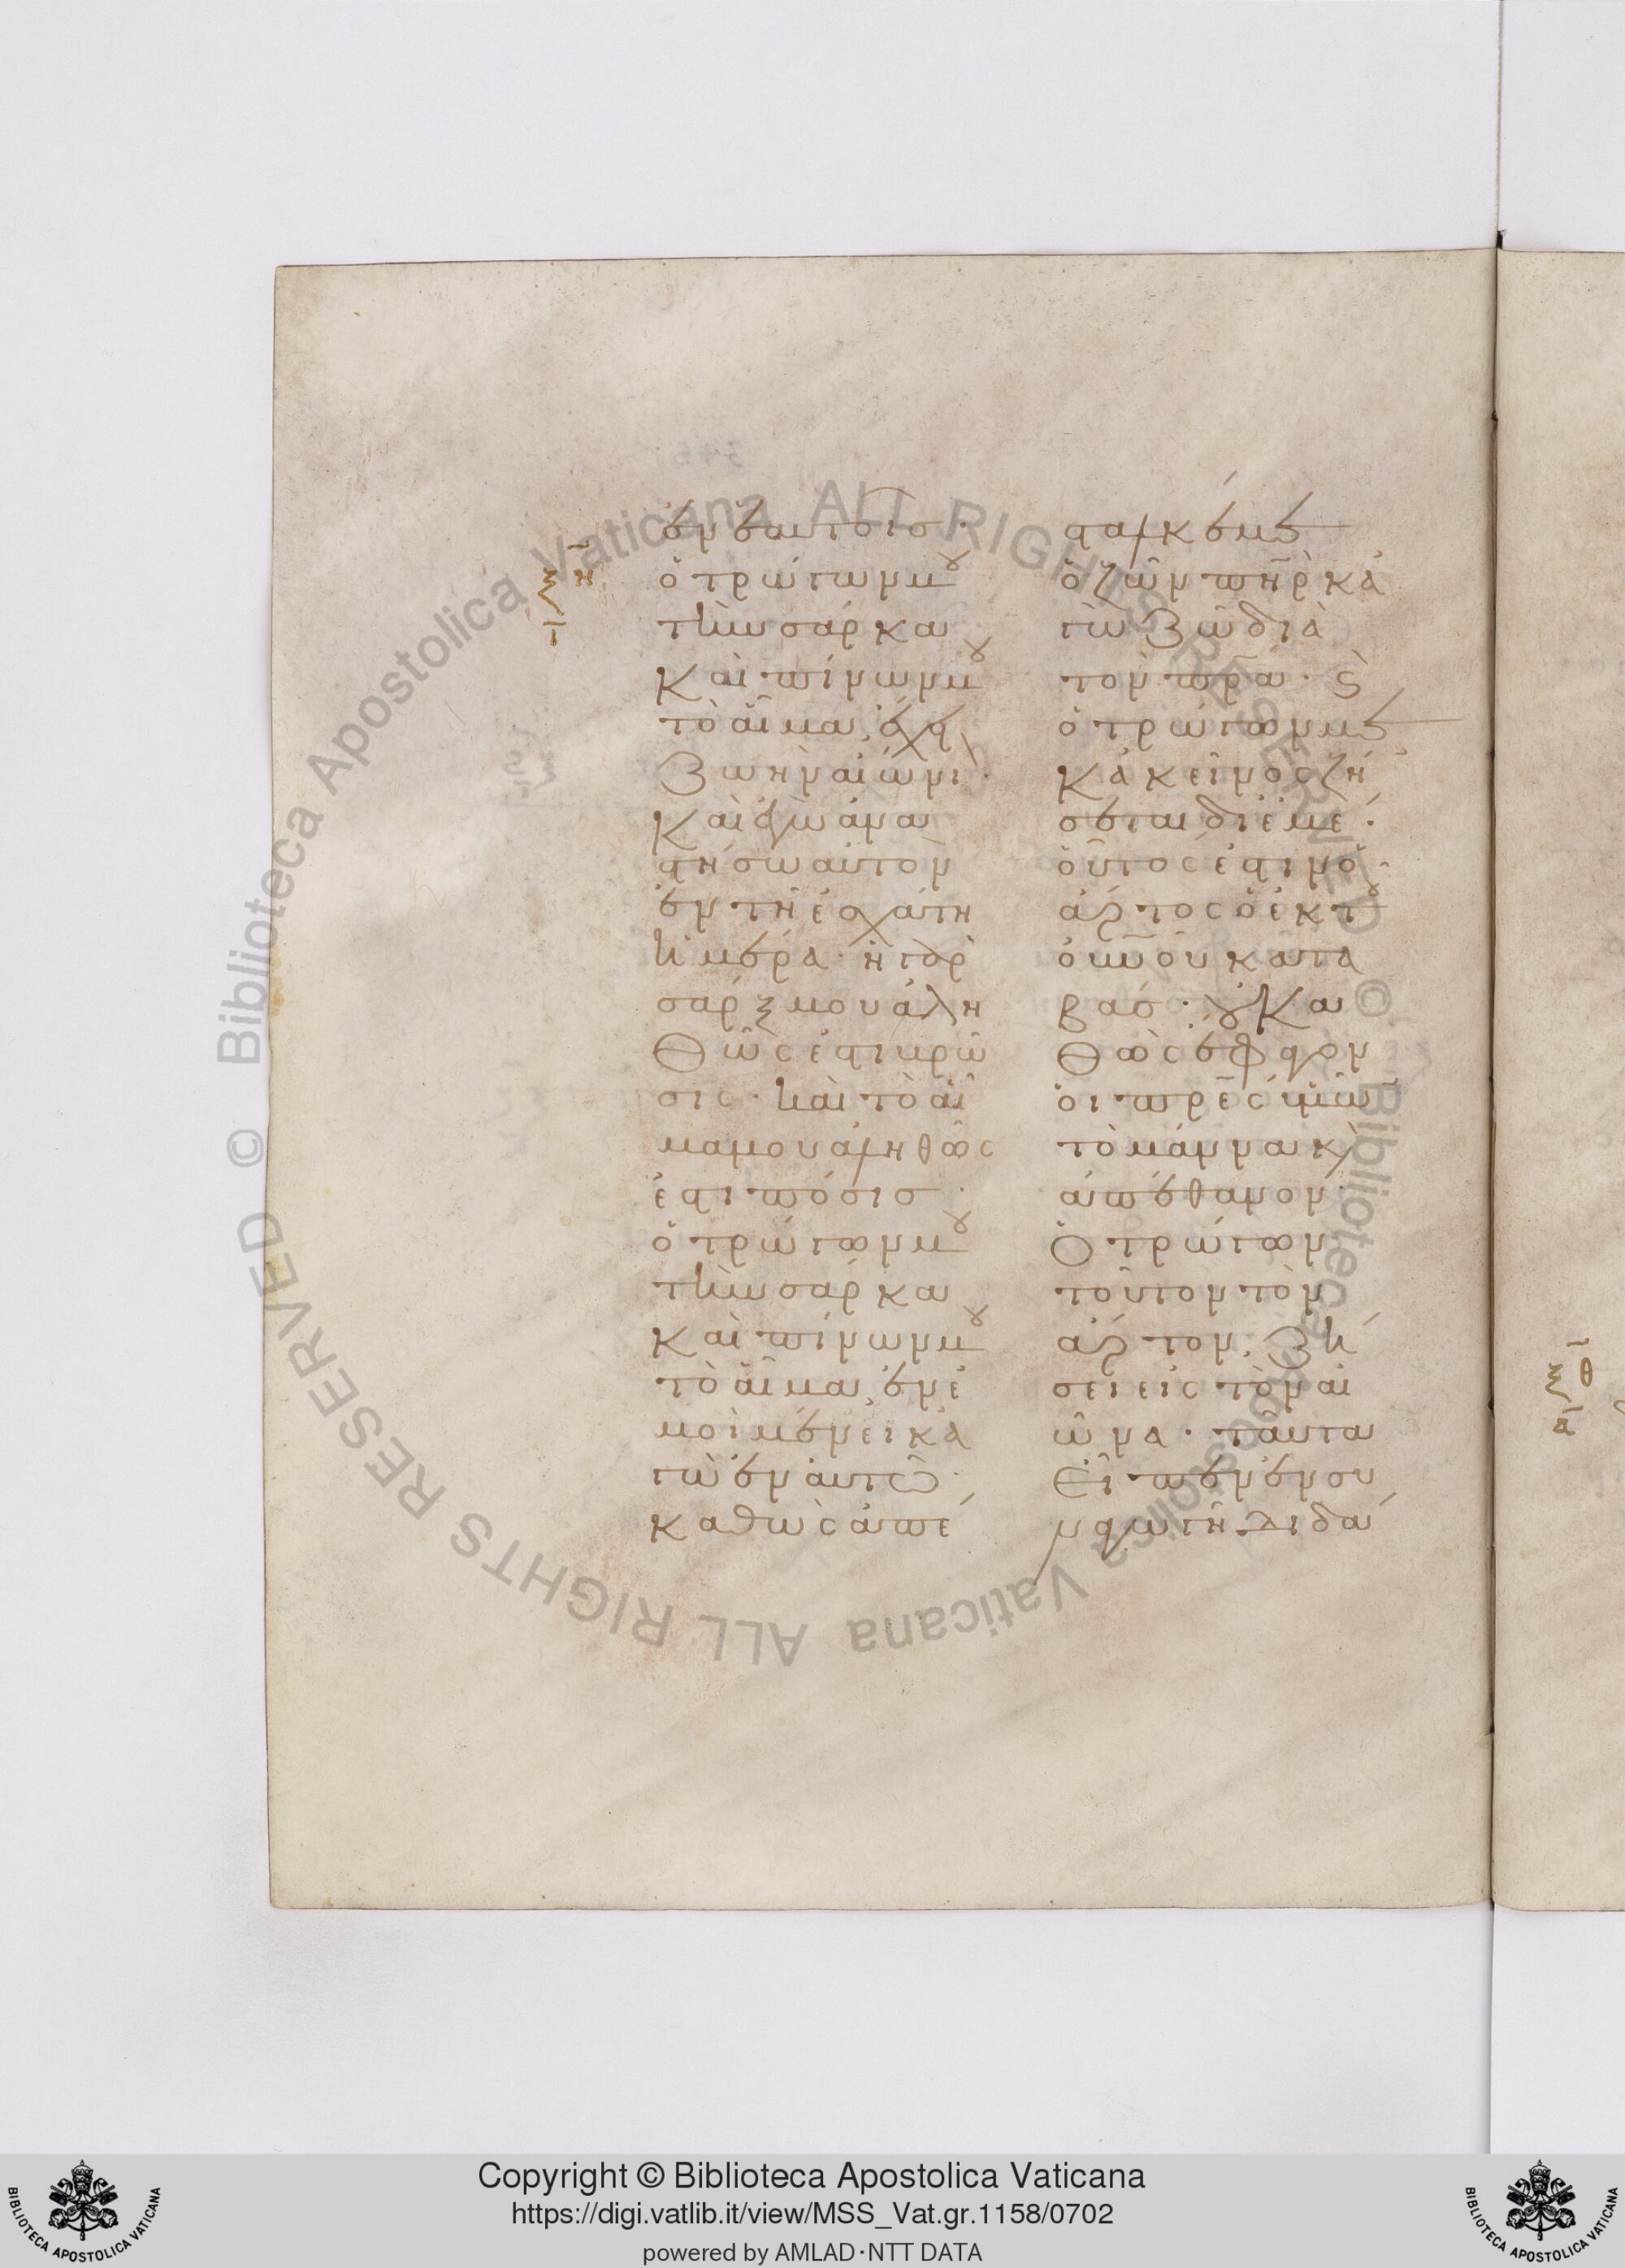 ἐν ἑαυτοῖσ·
ὁ τρώγων μου
τὴν σάρκα
καὶ πίνων μου
τὸ αἷμα, ἔχει
ζωὴν αἰώνι·
καὶ ἐγὼ ἀνα
στήσω αὐτὸν
ἐν τῆ ἐσχάτη
ἡμέρα· ἡ γὰρ
σάρξ μου ἀλη
θῶς ἐστι βρῶ
σις· καὶ τὸ αἷ
μα μου ἀληθῶς
ἐστι πόσισ·
ὁ τρώγων μου
τὴν σάρκα
καὶ πίνων μου
τὸ αἷμα, ἐν ἐ
μοὶ μένει κἀ
γὼ ἐν αὐτῶ·
καθὼς ἀπέ
στειλέν με
ὁ ζῶν πὴρ κἀ
γὼ ζῶ διὰ
τὸν πρα· καὶ
ὁ τρώγων με
κἀκεῖνος ζή
σεται δι' ἐμέ·
οὗτος ἐστιν ὁ
ἄρτος ὁ ἐκ τοῦ
οὐνοῦ κατα
βασ· οὐ κα
θὼς ἔφαγον
οἱ πρες ὑμῶν
τὸ μάννα καὶ
ἀπέθανον·
ὁ τρώγων
τοῦτον τὸν
ἄρτον, ζή
σει εἰς τὸν αἰ
ῶνα· ταῦτα
εἶπεν ἐν συ
ναγωγῆ διδά
Copyright © Biblioteca Apostolica Vaticana
https://digi.vatlib.it/view/MSS_Vat.gr.1158/0702
powered by AMLAD·NTT DATA
BIBLIOTECA APOSTOLICA VATICANA
BIBLIOTECA APOSTOLICA VATICANA
© Biblioteca Apostolica Vaticana ALL RIGHTS RESERVED
© Biblioteca Apostolica Vaticana ALL RIGHTS RESERVED